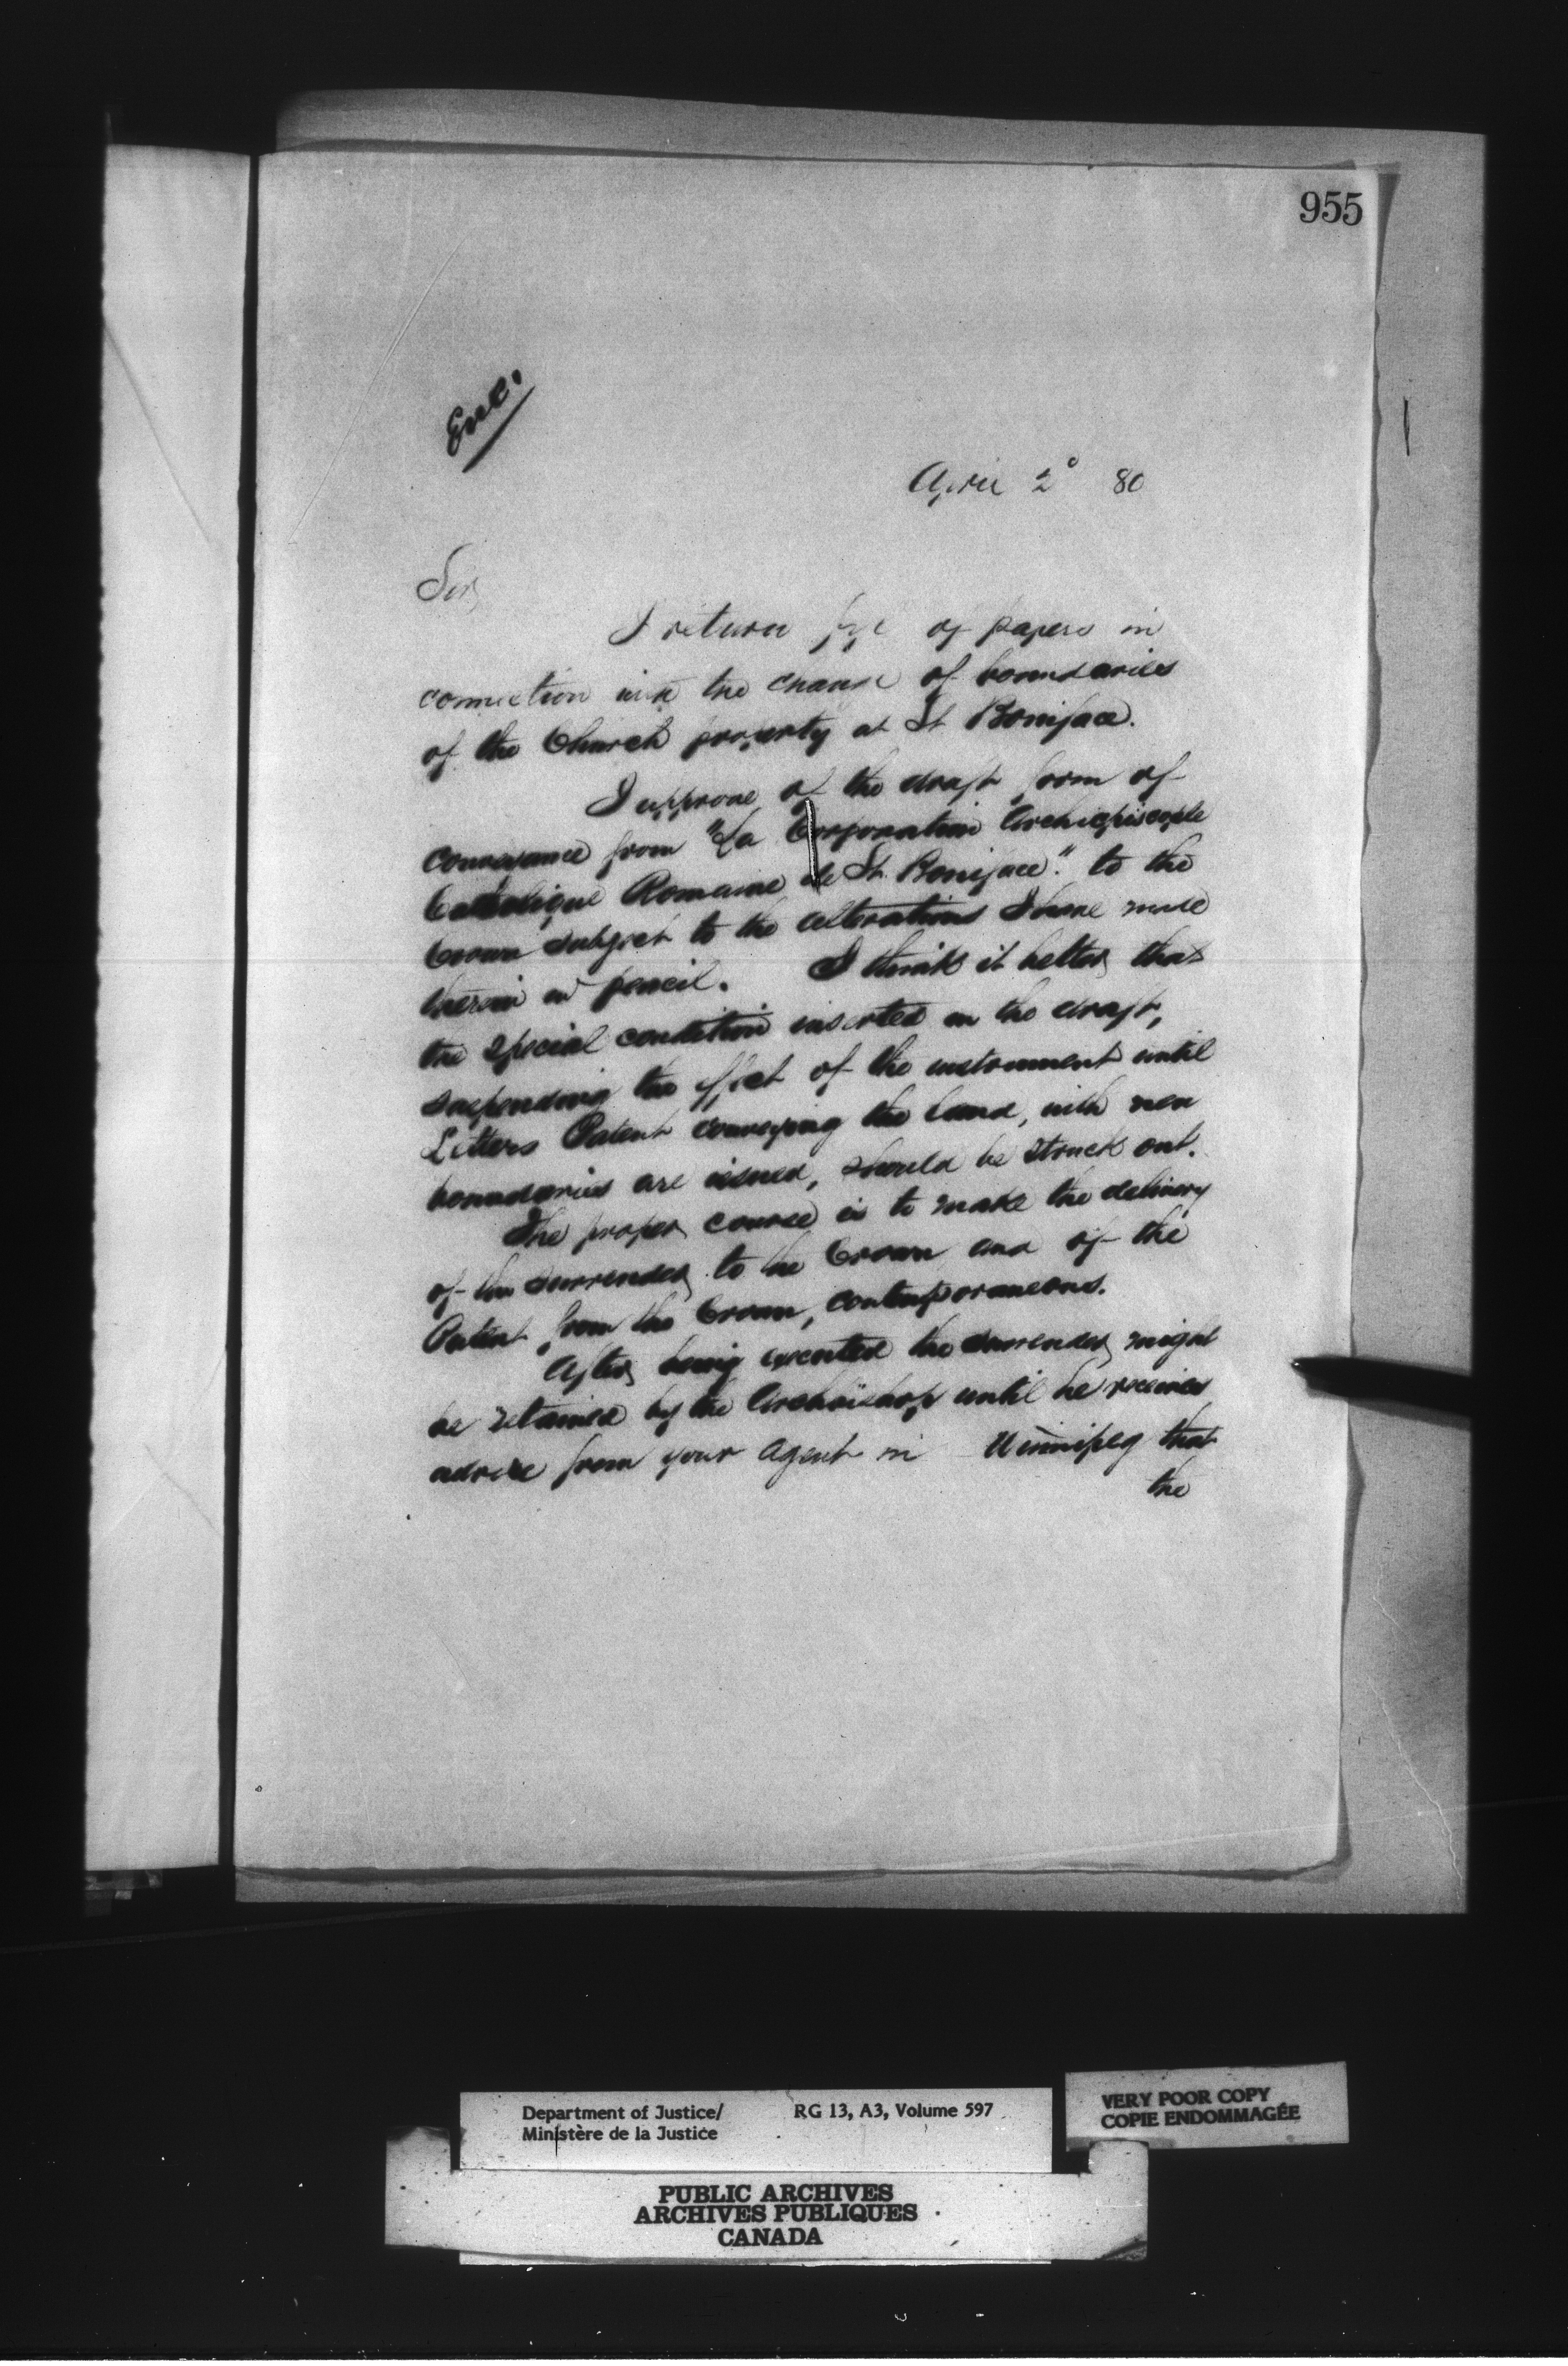 955
Enc.
April 2d 80
Sir,
I return file of papers in
connection with the change of boundaries
of the Church property at St Boniface.
I approve of the draft form of
conveyance from "La Corporation Archiepiscople
Catholique Romaine de St. Boniface." to the
Crown subject to the alterations I have made
therein in pencil. I think it better that
the special condition inserted in the draft,
suspending the effect of the instrument until
Letters Patent conveying the land, with new
boundaries are issued, should be struck out.
The proper course is to make the delivery
of the surrender to the Crown and of the
Patent from the Crown, contemporaneous.
After being executed the surrender might
be retained by the Archbishop until he receives
advice from your Agent in Winnipeg that
the
Department of Justice/ RG 13, A3, Volume 597
Ministère de la Justice
VERY POOR COPY
COPIE ENDOMMAGÉE
PUBLIC ARCHIVES
ARCHIVES PUBLIQUES
CANADA